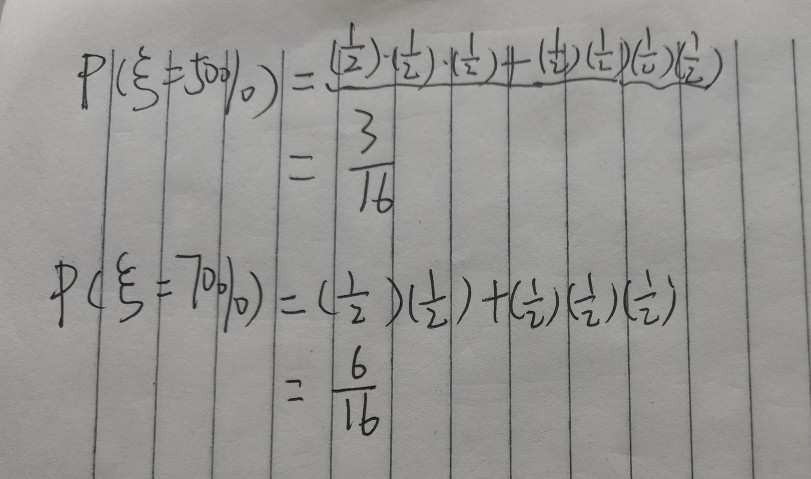 P(ξ=50%) = (1/2)·(1/2)·(1/2)+(1/2)(1/2)(1/2)(1/2)
= 3/16
P(ξ=70%) = (1/2)(1/2)+(1/2)(1/2)(1/2)
= 6/16